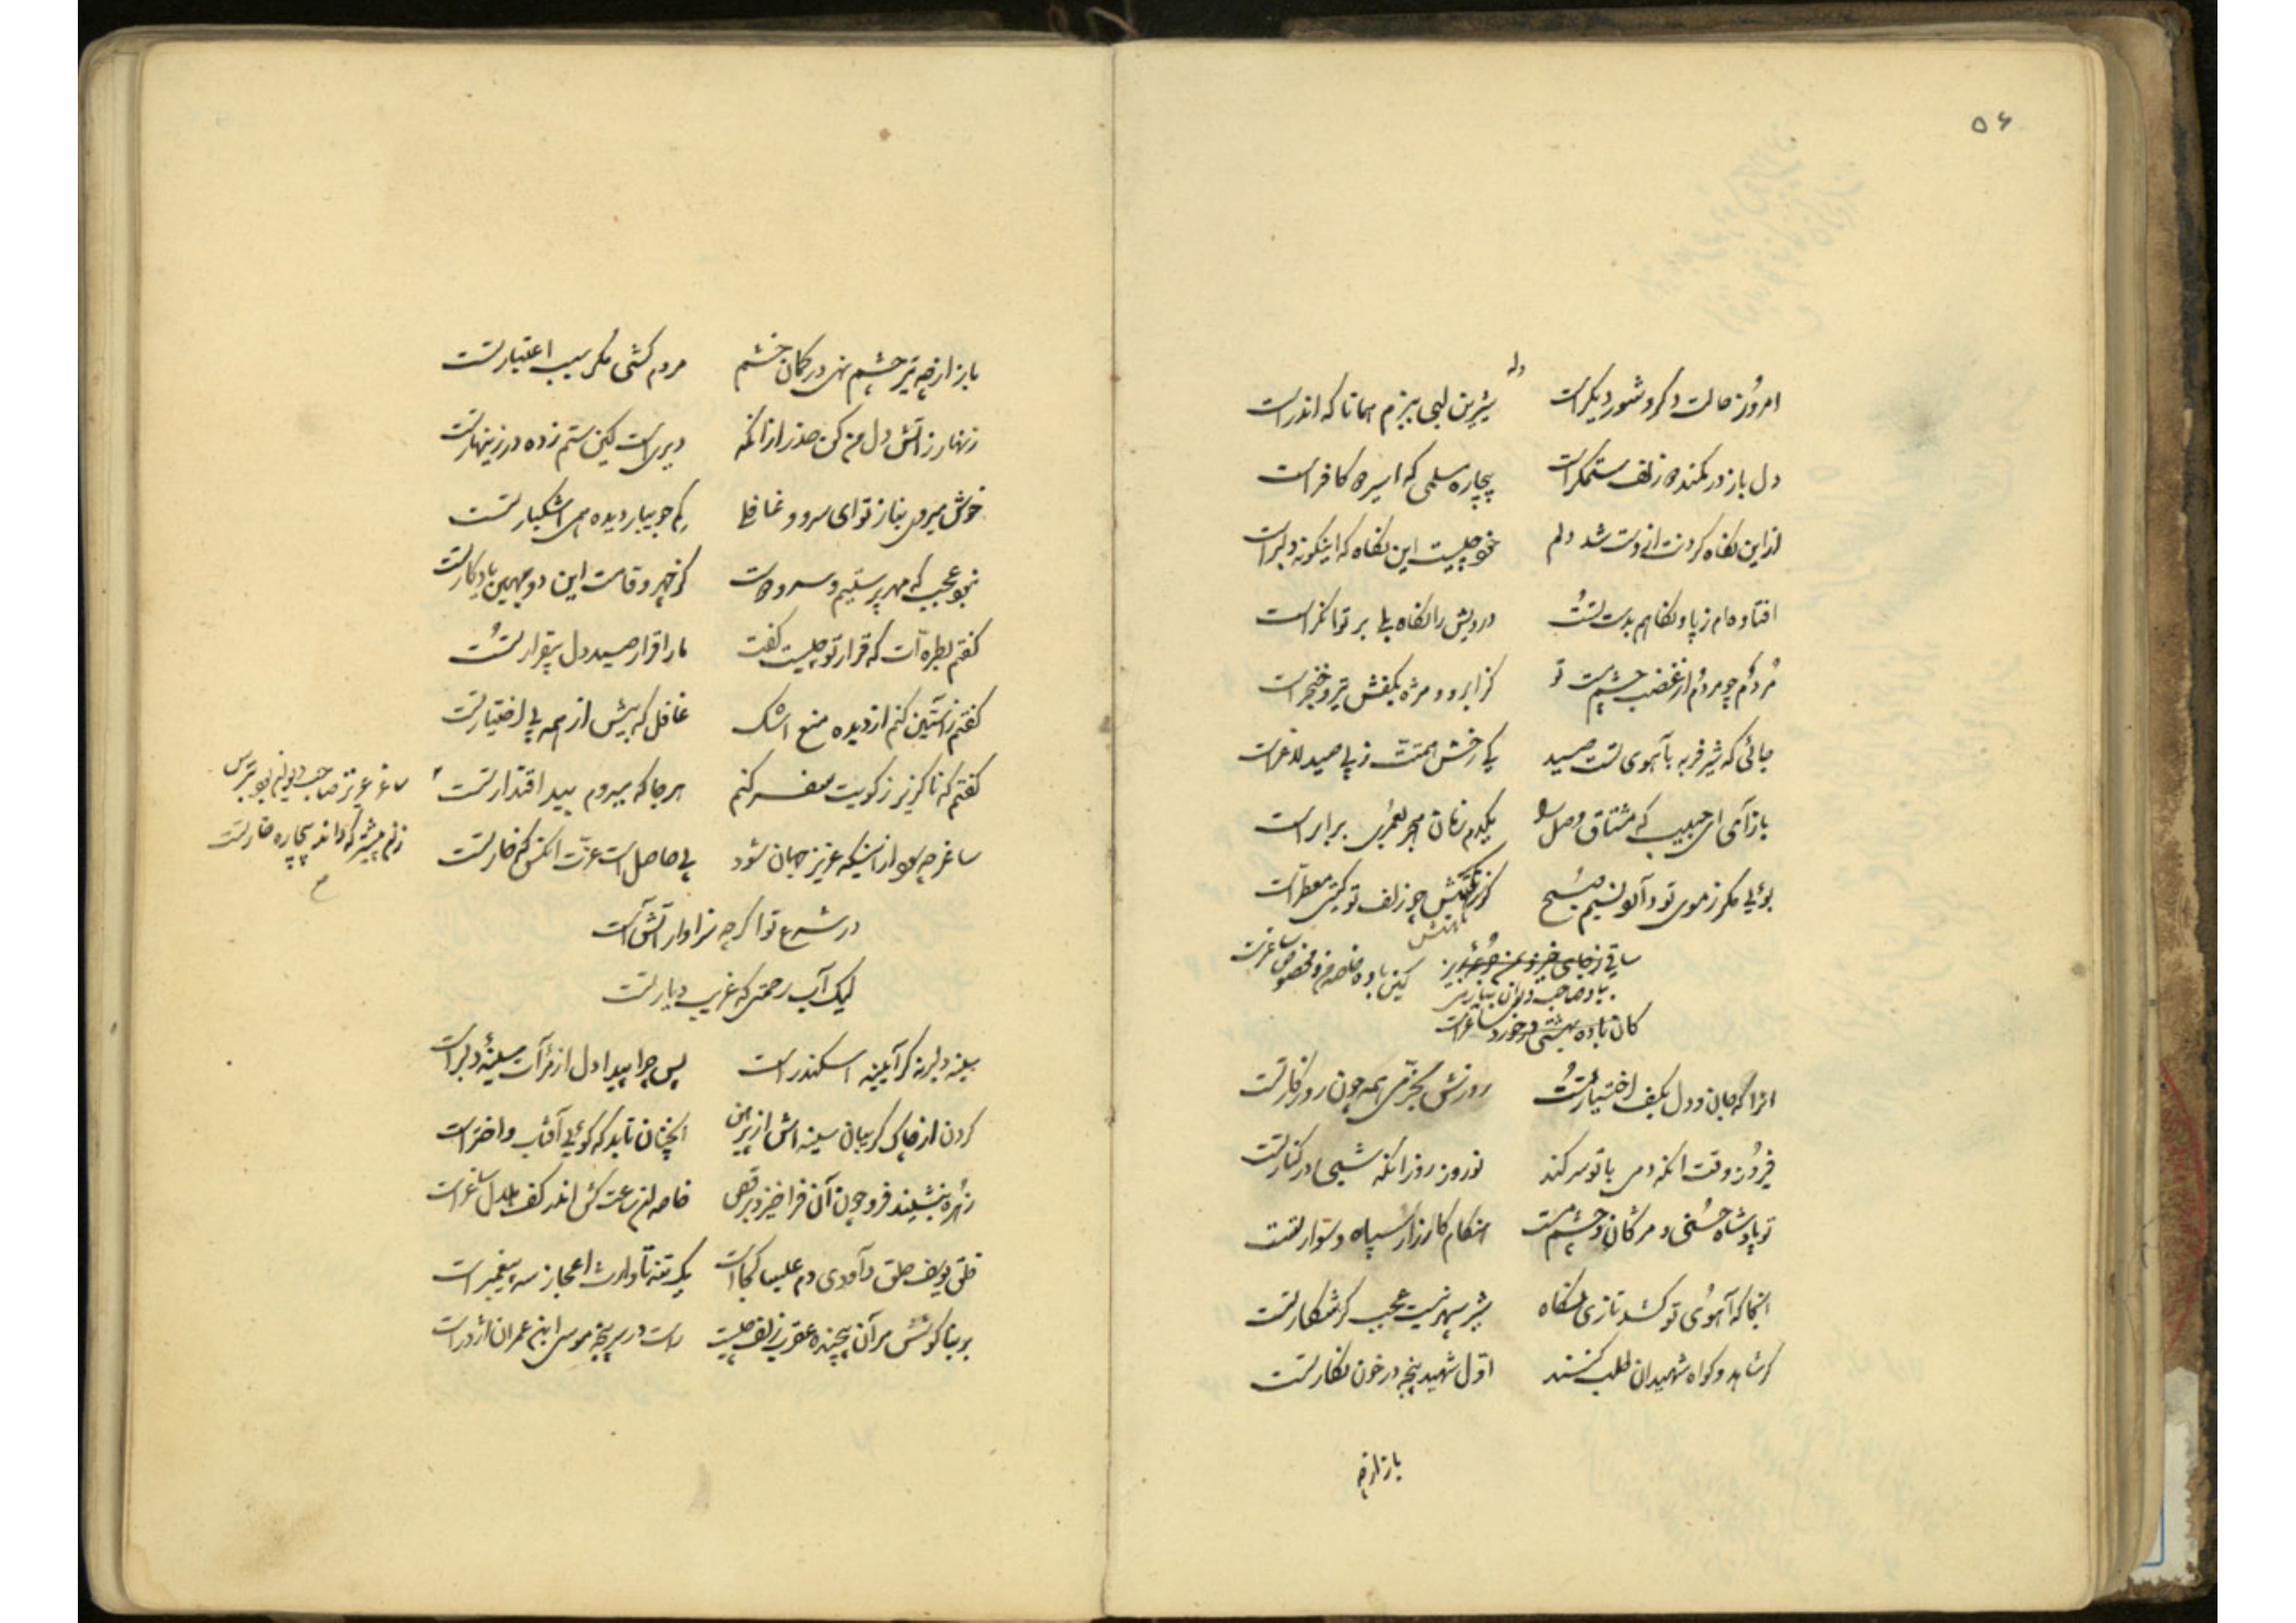 ۵۶
وله
امروز حالت دگر و شور دیگر است شیرین لبی ببزم همانا که اندر است
دل باز در کمند زلف ستمگر است بیچاره مسلمی که اسیر کافر است
از این نگاه کردنت از دست شد دلم خود چیست این نگاه که اینگونه دلبر است
افتاده‌ام ز پا و نگاهم بدست تست درویش را نگاه بلی بر توانگر است
مردم چو مردم از غضب چشم مست تو کز ابرو و مژه بکفش تیر و خنجر است
جائی که شیر فربه بآهوی تست صید کی رخش همتت ز پی صید لاغر است
باز آی ای حبیب که مشتاق وصل را یکدم زمان هجر بعمری برابر است
بوئی مگر ز موی تو دارد نسیم صبح کز نکهتش چو زلف تو گیتی معطر است
ساقی ز جای خیز
کین باده خاصه در خور مخصوص ساغر است
بیاد صاحب دیوان
کان باده بهشتی در خورد ساغر است
انرا که جان و دل بکف اختیار تست روزش بخرمی همه چون روزگار تست
فیروز وقت انکه دمی با تو سر کند نوروز روز انکه شبی در کنار تست
تو پادشاه حسنی و مژگان و چشم مست هنگام کارزار سپاه و سوار تست
انجا که آهوی تو کشد تازی نگاه شیر سپهر نیست عجب گر شکار تست
گر شاهد و گواه شهیدان طلب کنند اول شهید پنجه در خون نگار تست
باز از چه
باز از چه تیر چشم نهی در کمان خشم مردم کشی مگر سبب اعتبار تست
زنهار ز آتش دل من کن حذر از آنکه دیری است کین ستم زده در زینهار تست
خوش میروی بناز تو ای سرو و غافلی کم جویبار دیده اشکبار تست
نبود عجب که مهر پرستیم و سرو دوست کز چهر و قامت این دو بهین یادگار تست
گفتم بطره‌ات که قرار تو چیست گفت ما را قرار صید دل بیقرار تست
گفتم ز آستین کنم از دیده منع اشک غافل که بیش از همه بی اختیار تست
گفتم که ناگزیر ز کویت سفر کنم هر جا که میروم بید اقتدار تست
ساغر چه سود از اینکه عزیز جهان شود بی حاصل است عزت انکس که خار تست
ساغر عزیز صاحب دیوان
در شرع تو اگر چه سزاوار آتش است
لیک آب رحمتی که غریب دیار تست
سینه دلبر نه گر آیینه اسکندر است پس چرا پیدا دل از مرآت سینهٔ دلبر است
کردن از چاک گریبان سینه‌اش از پیرهن انچنان تابد که گوئی آفتاب و اختر است
زهره بنشیند فرو چون آن فرا خیزد برقص خاصه ان ساعت کش اندر کف ساغر است
خلق یوسف حلق داودی دم عیسا کجاست یک تنه تا وارث اعجاز سه پیغمبر است
بر بناگوشش مر آن پیچنده عقرب زلف چیست راست در سر پنجه موسی ابن عمران اژدر است